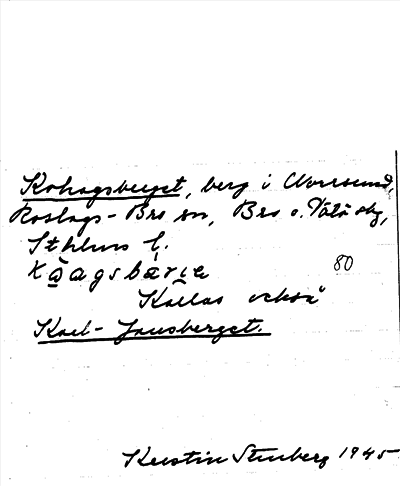 Kohagsberget, berg i Norrsund,
Roslags-Bro sn, Bro o. Vätö skg,
Sthlms l.
kåagsbärje 80
Kallas också
Karl-Jansberget.
Kerstin Stenberg 1945